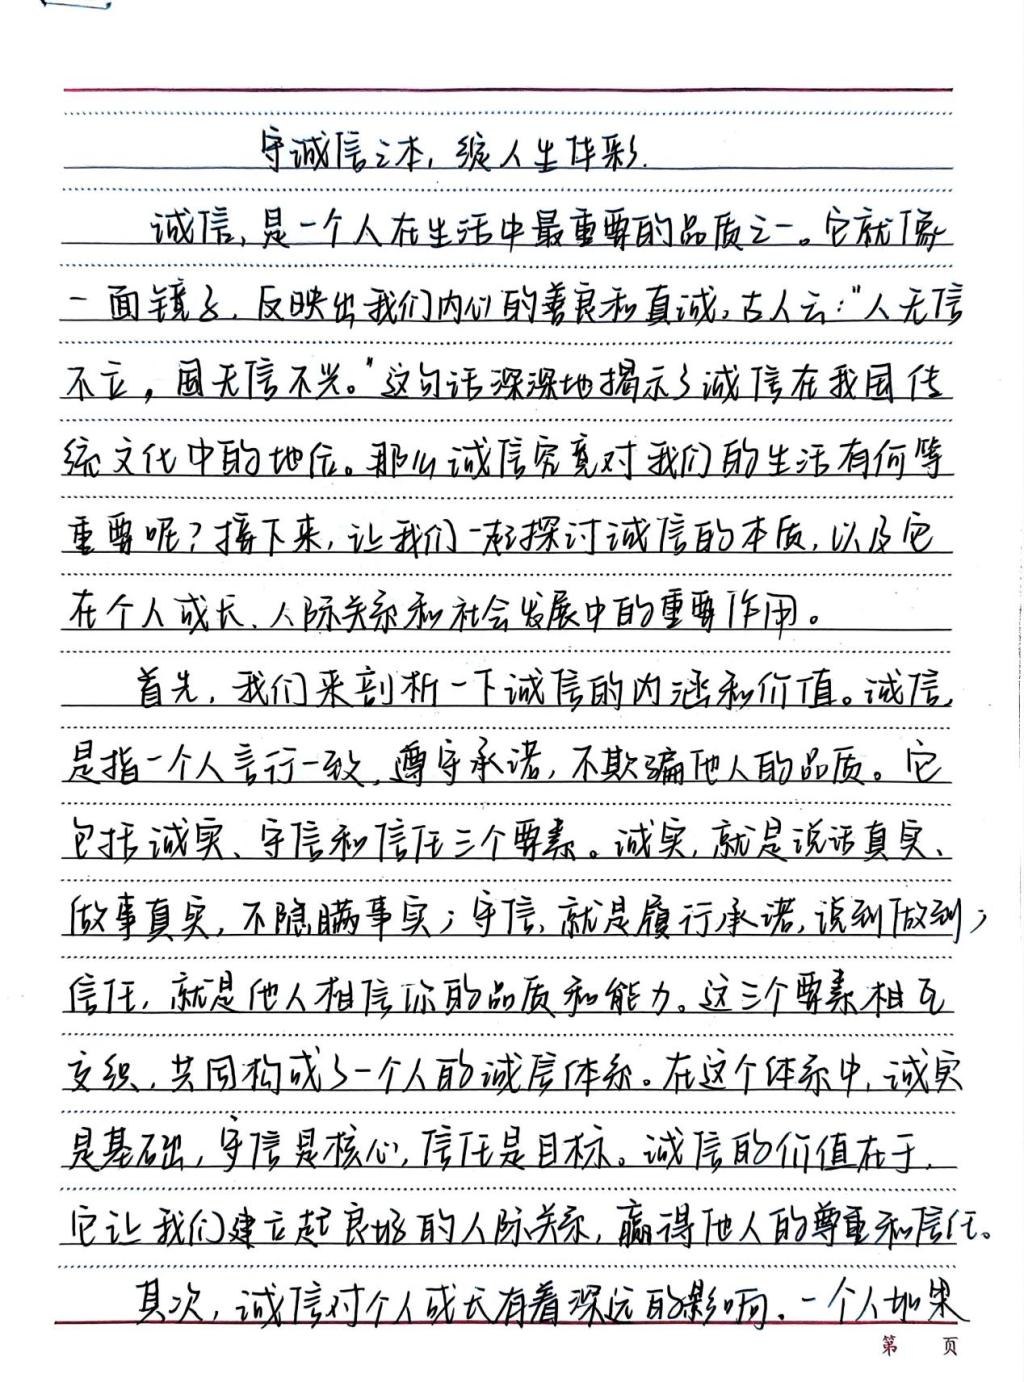 守诚信之本，绽人生华彩.
诚信，是一个人在生活中最重要的品质之一。它就像
一面镜子，反映出我们内心的善良和真诚。古人云：“人无信
不立，国无信不兴。”这句话深深地揭示了诚信在我国传
统文化中的地位。那么诚信究竟对我们的生活有何等
重要呢？接下来，让我们一起探讨诚信的本质，以及它
在个人成长、人际关系和社会发展中的重要作用。
首先，我们来剖析一下诚信的内涵和价值。诚信，
是指一个人言行一致，遵守承诺，不欺骗他人的品质。它
包括诚实、守信和信任三个要素。诚实，就是说话真实、
做事真实，不隐瞒事实；守信，就是履行承诺，说到做到；
信任，就是他人相信你的品质和能力。这三个要素相互
交织，共同构成了一个人的诚信体系。在这个体系中，诚实
是基础，守信是核心，信任是目标。诚信的价值在于，
它让我们建立起良好的人际关系，赢得他人的尊重和信任。
其次，诚信对个人成长有着深远的影响。一个人如果
第 页